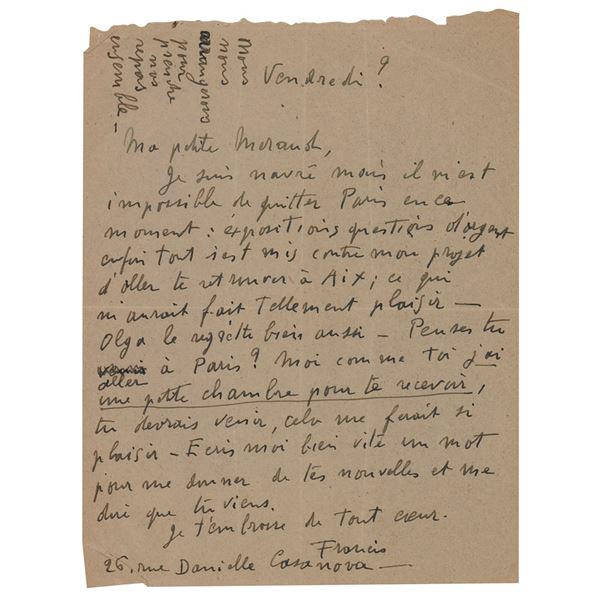 Nous
nous
arrangerons
pour
prendre
nos
repas
ensemble –
Vendredi ?
Ma petite
Je suis navré mais il m'est
impossible de quitter Paris en ce
moment : expositions questions d'argent
enfin tout s'est mis contre mon projet
d'aller te retrouver à Aix ; ce qui
m'aurait fait tellement plaisir –
Olga le regrette bien aussi – Penses tu
aller à Paris ? Moi comme toi j'ai
une petite chambre pour te recevoir,
tu devrais venir, cela me ferait si
plaisir – Ecris moi bien vite un mot
pour me donner de tes nouvelles et me
dire que tu viens.
Je t'embrasse de tout cœur.
Francis
26, rue Danielle Casanova –